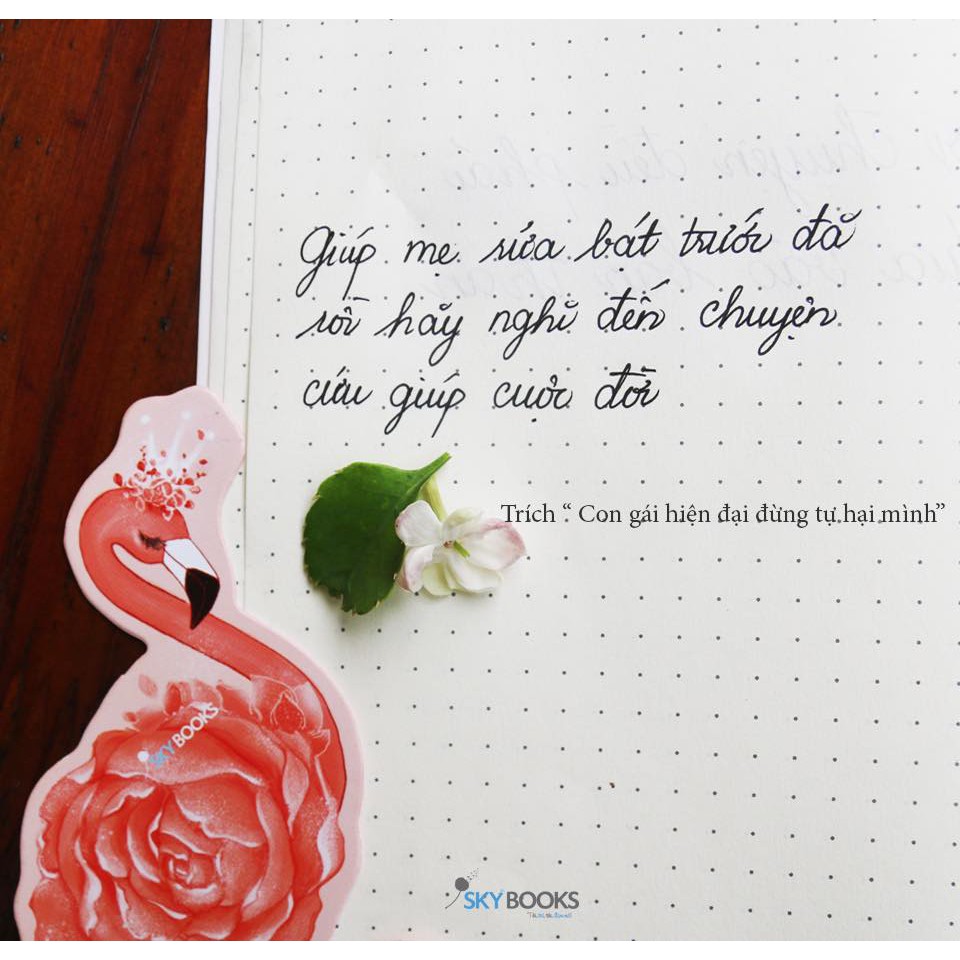 Giúp mẹ rửa bát trước đã
rồi hãy nghĩ đến chuyện
cứu giúp cuộc đời
Trích “ Con gái hiện đại đừng tự hại mình”
SKYBOOKS
SKYBOOKS